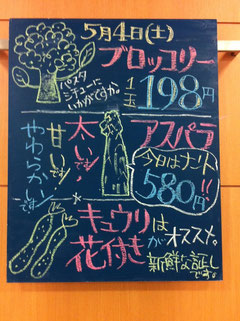 5月4日(土)
ブロッコリー
パスタ
シチューに
いかがですか。
1玉 198円
アスパラ
今日はナント
580円!!
太いです!
甘いです!
やわらかいです!
キュウリは
花付きがオススメ。
新鮮な証しです。